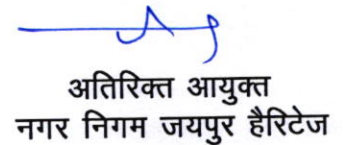 अतिरिक्त आयुक्त
नगर निगम जयपुर हैरिटेज